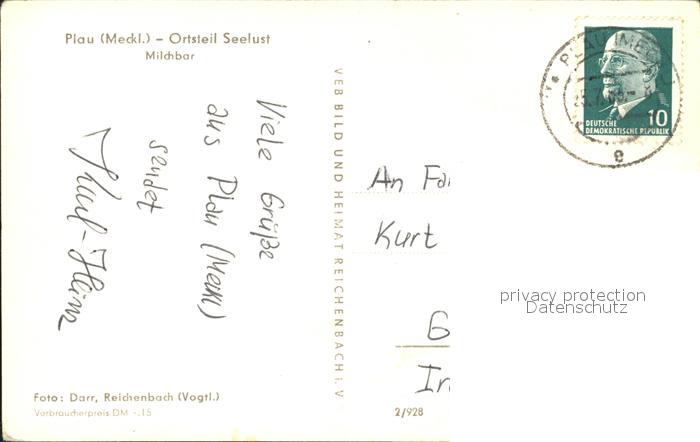 Plau (Meckl.) – Ortsteil Seelust
Milchbar
Viele Grüße
aus Plau (Meckl)
sendet
Karl-Heinz
VEB BILD UND HEIMAT REICHENBACH i. V
Foto: Darr, Reichenbach (Vogtl.)
Verbraucherpreis DM -.15
PLAU (MECKL)
e
10
DEUTSCHE
DEMOKRATISCHE REPUBLIK
An
Kurt
privacy protection
Datenschutz
2/928